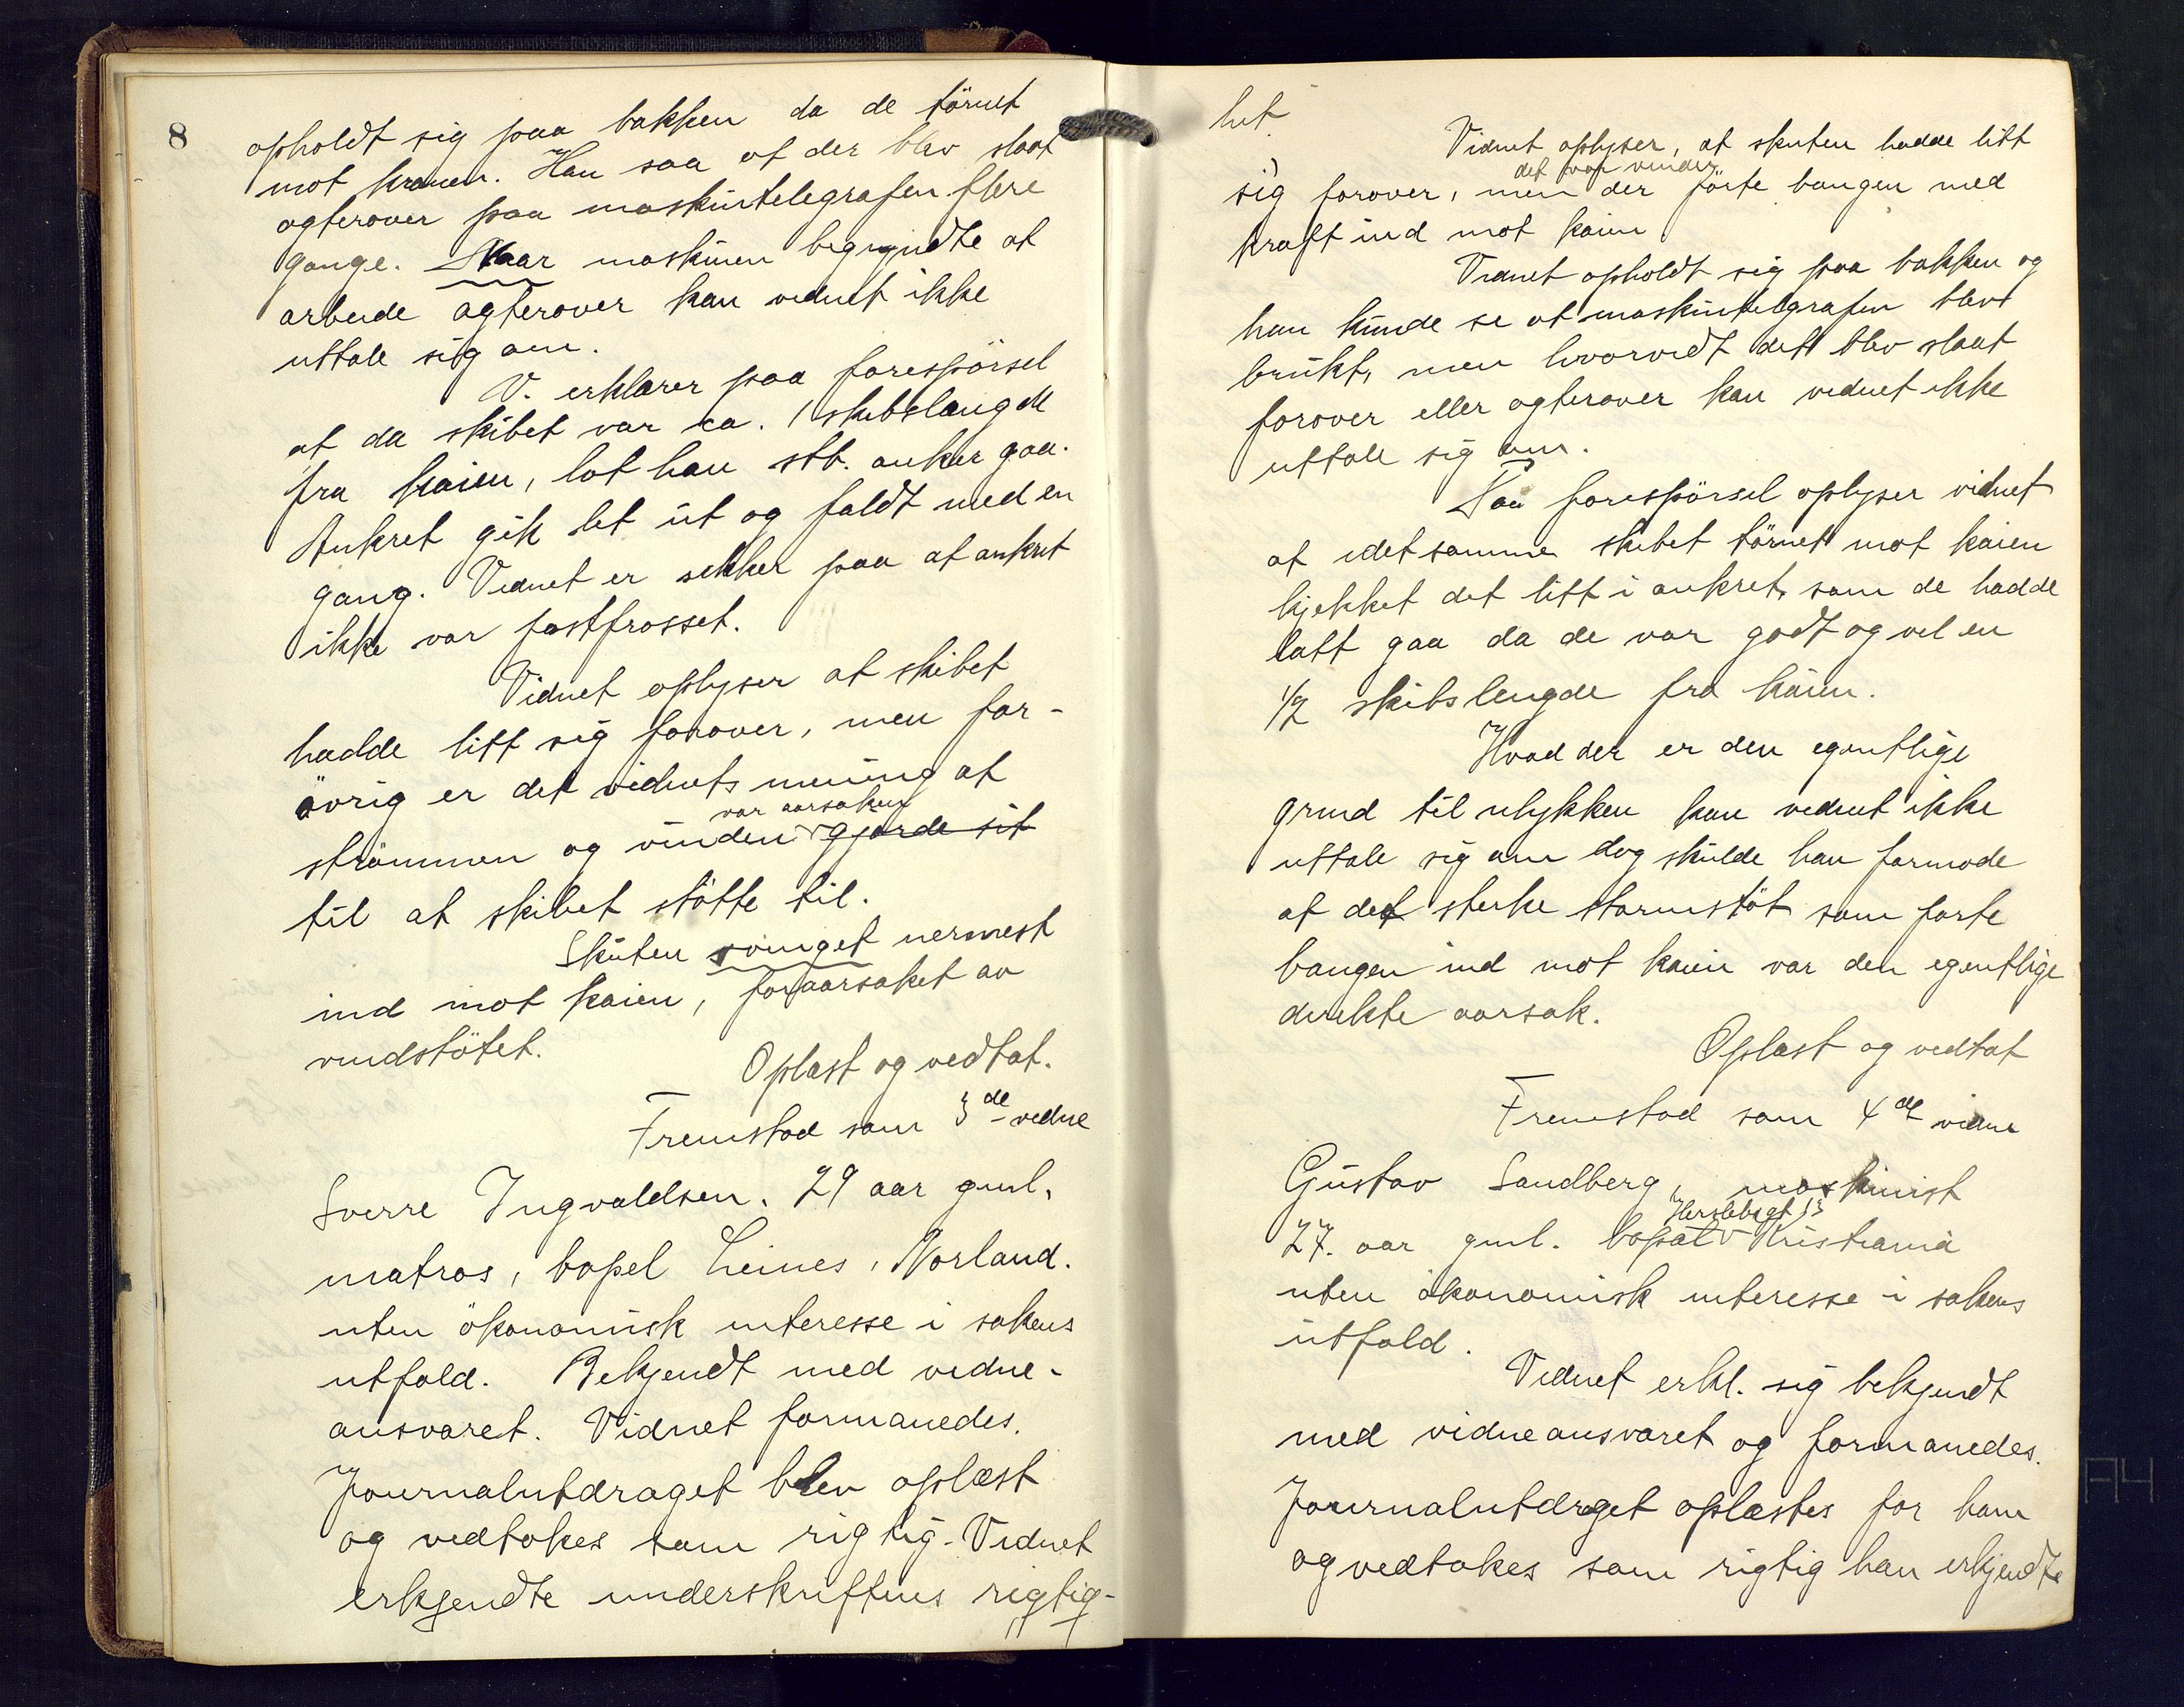 8
opholdt sig paa bakken da de törnet
mot kranen. Han saa at der blev slaat
agterover paa maskintelegrafen flere
gange. Naar maskinen begyndte at
arbeide agterover kan vidnet ikke
uttale sig om.
V. erklærer paa forespörsel
at da skibet var ca. 1 skibslængde
fra kaien, lot han stb. anker gaa.
Ankret gik let ut og faldt med en
gang. Vidnet er sikker paa at ankret
ikke var fastfrosset.
Vidnet oplyser at skibet
hadde litt sig forover, men for-
övrig er det vidnets mening at
var aarsaken
strömmen og vinden gjorde sit
til at skibet stötte til.
Skuten svinget nermest
ind mot kaien, foraarsaket av
vindstötet.
Oplæst og vedtat.
Fremstod som 3de vidne
Sverre Ingvaldsen. 29 aar gml,
matros, bopel Leines, Norland.
uten ökonomisk interesse i sakens
utfald. Bekjendt med vidne-
ansvaret. Vidnet formanedes.
Journalutdraget blev oplæst
og vedtokes som rigtig. Vidnet
erkjendte underskriftens rigtig-
het.
Vidnet oplyser, at skuten hadde litt
det var vinden
sig forover, men der förte baugen med
kraft ind mot kaien
Vidnet opholdt sig paa bakken og
han kunde se at maskintelegrafen blev
brukt, men hvorvidt det blev slaat
forover eller agterover kan vidnet ikke
uttale sig om.
Paa forespörsel oplyser vidnet
at idetsamme skibet törnet mot kaien
kjekket det litt i ankret, som de hadde
latt gaa da de var godt og vel en
1/2 skibslengde fra kaien.
Hvad der er den egentlige
grund til ulykken kan vidnet ikke
uttale sig om dog skulde han formode
at det sterke stormstöt som förte
baugen ind mot kaien var den egentlige
direkte aarsak.
Oplæst og vedtat
Fremstod som 4de vidne
Gustav Sandberg, maskinist
27. aar gml. bopæl Kristiania
uten ökonomisk interesse i sakens
utfald.
Vidnet erkl. sig bekjendt
med vidneansvaret og formanedes.
Journalutdraget oplæstes for ham
og vedtokes som rigtig han erkjendte